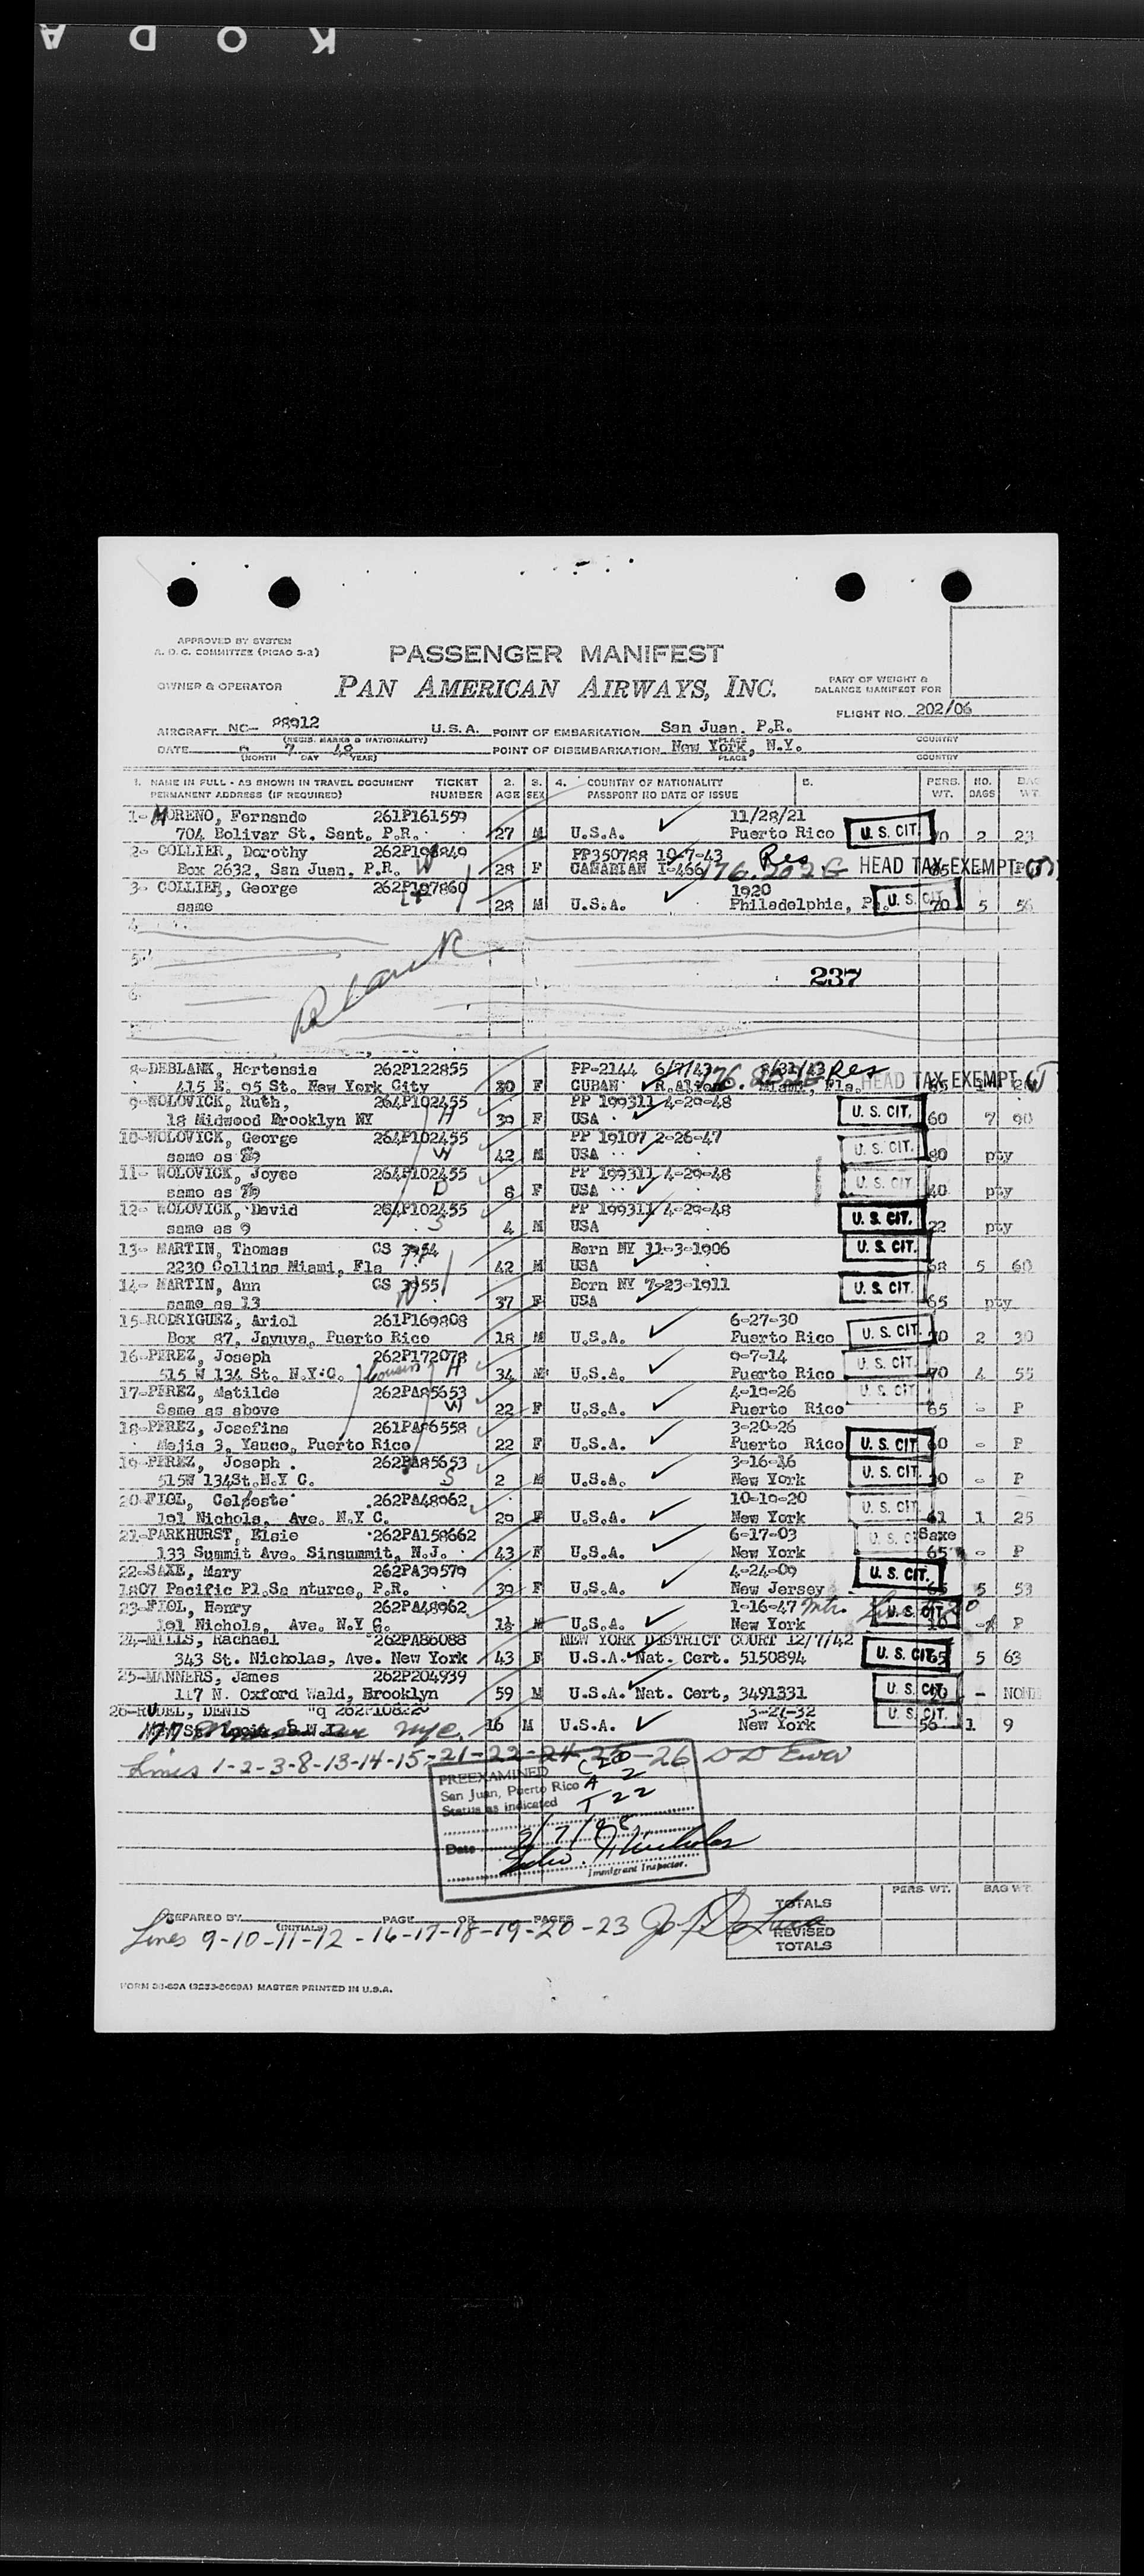 KODA
APPROVED BY SYSTEM
A. D. C. COMMITTEE (PICAO 3-2)
PASSENGER MANIFEST
OWNER & OPERATOR
PAN AMERICAN AIRWAYS, INC.
PART OF WEIGHT &
BALANCE MANIFEST FOR
FLIGHT NO. 202/06
AIRCRAFT NC- 88912 U.S.A. POINT OF EMBARKATION San Juan, P.R.
(REGIS. MARKS & NATIONALITY) PLACE COUNTRY
DATE 7 48 POINT OF DISEMBARKATION New York, N.Y.
(MONTH DAY YEAR) PLACE COUNTRY
1. NAME IN FULL - AS SHOWN IN TRAVEL DOCUMENT TICKET 2. 3. 4. COUNTRY OF NATIONALITY 5. PERS. NO. BAG
PERMANENT ADDRESS (IF REQUIRED) NUMBER AGE SEX PASSPORT NO DATE OF ISSUE WT. BAGS WT.
1- MORENO, Fernando 261P161559 11/28/21
704 Bolivar St. Sant. P.R. 27 M U.S.A. Puerto Rico U. S. CIT. 70 2 23
2- COLLIER, Dorothy 262P198849 PP350788 10-7-43 Res
Box 2632, San Juan, P.R. W 28 F CANADIAN I-466 176.202G HEAD TAX EXEMPT
3- COLLIER, George 262P197860 1920
same 28 M U.S.A. Philadelphia, Pa. U. S. CIT. 70 5 56
4
5
Blank
237
6
8-DEBLANK, Hortensia 262P122855 PP-2144 6/7/43 8/31/43 Res
415 E. 95 St. New York City 30 F CUBAN Miami, Fla. HEAD TAX EXEMPT
9-WOLOVICK, Ruth, 264P102455 PP 199311 4-29-48
18 Midwood Brooklyn NY H 39 F USA U. S. CIT. 60 7 90
10-WOLOVICK, George 264P102455 PP 19107 2-26-47
same as 9 W 42 M USA U. S. CIT. 80 pty
11- WOLOVICK, Joyce 264P102455 PP 199311 4-29-48
same as 9 D 8 F USA U. S. CIT. 40 pty
12- WOLOVICK, David 264P102455 PP 199311 4-29-48
same as 9 S 4 M USA U. S. CIT. 22 pty
13- MARTIN, Thomas CS 3954 Born NY 11-3-1906
2230 Collins Miami, Fla 42 M USA U. S. CIT. 88 5 60
14- MARTIN, Ann CS 3955 Born NY 7-23-1911
same as 13 W 37 F USA U. S. CIT. 65 pty
15-RODRIGUEZ, Ariol 261P169808 6-27-30
Box 87, Jayuya, Puerto Rico 18 M U.S.A. Puerto Rico U. S. CIT. 70 2 30
16-PEREZ, Joseph 262P172078 9-7-14
515 W 134 St. N.Y.C. Cousin H 34 M U.S.A. Puerto Rico U. S. CIT. 70 4 55
17-PEREZ, Matilde 262PA85653 4-19-26
Same as above W 22 F U.S.A. Puerto Rico U. S. CIT. 65 - P
18-PEREZ, Josefina 261PA86558 3-20-26
Mejia 3, Yauco, Puerto Rico 22 F U.S.A. Puerto Rico U. S. CIT. 60 - P
19-PEREZ, Joseph 262PA85653 3-16-46
515W 134St.N.Y C. S 2 M U.S.A. New York U. S. CIT. 30 - P
20-FIOL, Celeste 262PA48962 10-19-20
191 Nichols, Ave. N.Y C. 29 F U.S.A. New York U. S. CIT. 61 1 25
21-PARKHURST, Elsie 262PA158662 6-17-03 Saxe
133 Summit Ave. Sinsummit, N.J. 43 F U.S.A. New York U. S. CIT. 65 - P
22-SAXE, Mary 262PA39579 4-24-09
1807 Pacific Pl.Sa nturce, P.R. 39 F U.S.A. New Jersey U. S. CIT. 65 5 53
23-FIOL, Henry 262PA48962 1-16-47 Mtr. Line 20
191 Nichols, Ave. N.Y C. M U.S.A. New York U. S. CIT. 10 - P
24-MILLS, Rachael 262PA86088 NEW YORK DISTRICT COURT 12/7/42
343 St. Nicholas, Ave. New York 43 F U.S.A. Nat. Cert. 5150894 U. S. CIT. 65 5 63
25-MANNERS, James 262P204939
117 N. Oxford Wald, Brooklyn 59 M U.S.A. Nat. Cert, 3491331 U. S. CIT. 70 - NONE
26-RUDEL, DENIS 3-27-32
NYC. 16 M U.S.A. New York U. S. CIT. 56 1 9
Lines 1-2-3-8-13-14-15-21-22-24-25-26
PREEXAMINED
San Juan, Puerto Rico
Status as indicated
C 20
A 2
T 22
Date 9/7/48
Immigrant Inspector.
PERS WT. BAG WT.
TOTALS
PREPARED BY (INITIALS) PAGE OF PAGES
Lines 9-10-11-12-16-17-18-19-20-23
REVISED
TOTALS
MASTER PRINTED IN U.S.A.